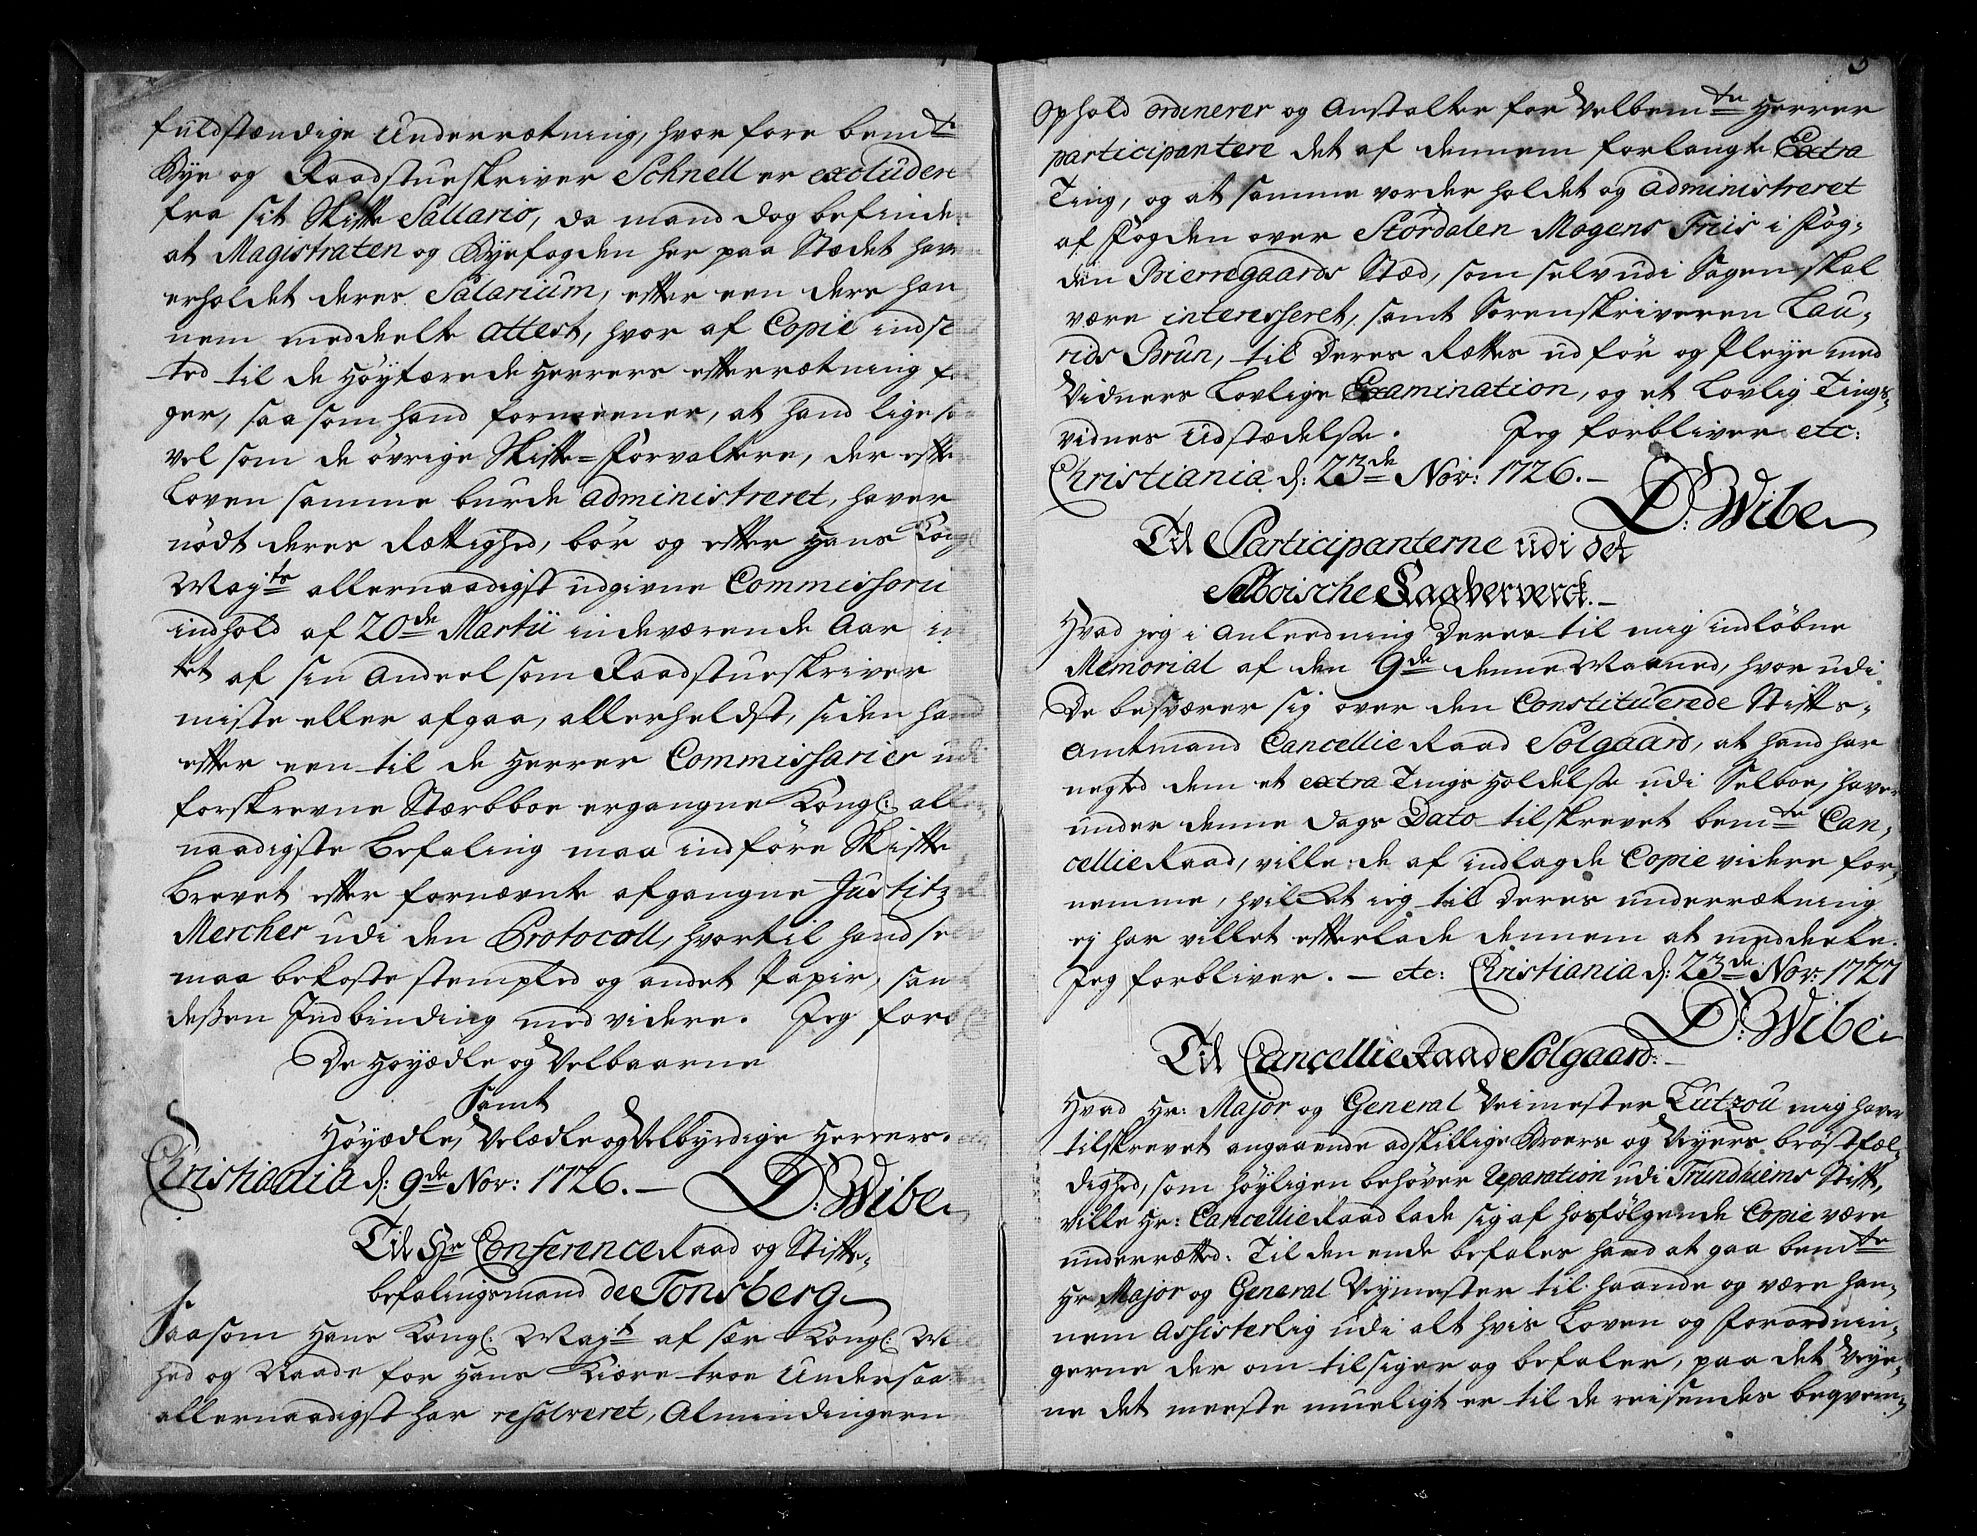 fuldstændige Underrætning, hvorfore bemte
Bye og Raadstueskriver Schnell er excluderet
fra sit Skifte Sallario, da mand dog befinder
at Magistraten og Byefogden her paa Stædet have
erholdet deres Salarium, efter een ders han
nem meddeelte attest, hvor af Copie indst
ted til de Høytærede Herrers efterrætning føl
ger, saasom hand formeener, at hand ligesaa
vel som de øvrige Skifte-Forvaltere, der efter
Loven samme burde administreret, haver
nødt deres Rættighed, bør og efter Hans Kongl
Mayts allernaadigst udgivne Commissorii
indhold af 20de Martii indeværende Aar in
tet af sin Andeel som Raadstueskriver
miste eller afgaa, allerheldst, siden hand
efter een til de Herrer Commissarier udi
forskrevne Stærbboe ergangne Kongl: aller
naadigste Befaling maa indføre Skifte
Brevet efter fornævnte afgangne Justitz
Mercher udi den Protocoll, hvortil hand selv
maa bekoste stempled og andet Papir, samt
deßen Indbinding med videre. Jeg forbl
De Høyædle og Velbaarne
Samt
Høyædle, Velædle og Velbyrdige Herrers etc
Christiania d: 9de Nov: 1726. — D: Wibe
Til Hr ConferenceRaad og Stifts-
befalingsmand de Tonsberg
Saasom Hans Kongl: Mayt af sær Kongl: Mild
hed og Naade for Hans Kiære troe Undersaatter
allernaadigst har resolveret, Almindingerne
5
Ophold ordinerer og Anstalter for Velbemte Herrer
participantere det af dennem forlangte Extra
Ting, og at samme vorder holdet og administreret
af Fogden over Stördalen Mogens Friis i Fog-
den Bierregaards Stæd, som selv udi Sagen skal
være interesseret, samt Sorenskriveren Lau-
rids Brun, til Deres Rættes udför og Pleye med
Vidners Lovlige Examination, og et Lovlig Tings-
vidnes Udstædelse. Jeg forbliver etc:
Christiania d: 23de Nov: 1726. —
D: Wibe
Til Participanterne udi det
Selboische Kaaberverck. —
Hvad jeg i Anleedning Deres til mig indløbne
Memorial af den 9de denne Maaned, hvor udi
De besværer sig over den Constituerede Stifts-
Amtmand CancellieRaad Solgaard, at hand har
negted dem et extra Tings Holdelse udi Selboe, haver
under denne Dags Dato tilskrevet bemte Can-
cellieRaad, ville de af indlagde Copie videre for-
nemme, hvilket ieg til Deres underrætning
ej har villet efterlade dennem at meddeele.
Jeg forbliver. — etc: Christiania d: 23de Nov: 1727
D: Wibe
Til CancellieRaad Solgaard: —
Hvad Hr: Major og General Veimester Lutzou mig haver
tilskrevet angaaende adskillige Broers og Veyers bröstfæl-
dighed, som høyligen behøver Reparation udi Trundhiems Stift,
ville Hr: CancellieRaad lade sig af hosfølgende Copie være
underrætted: Til den ende befales hand at gaa bemte
Hr Major og General Veymester til haande og være han-
nem Assisterlig udi alt hvis Loven og Forordnin-
gerne der om tilsiger og befaler, paa det Veye-
ne det meeste mueligt er til de reisendes beqvem-